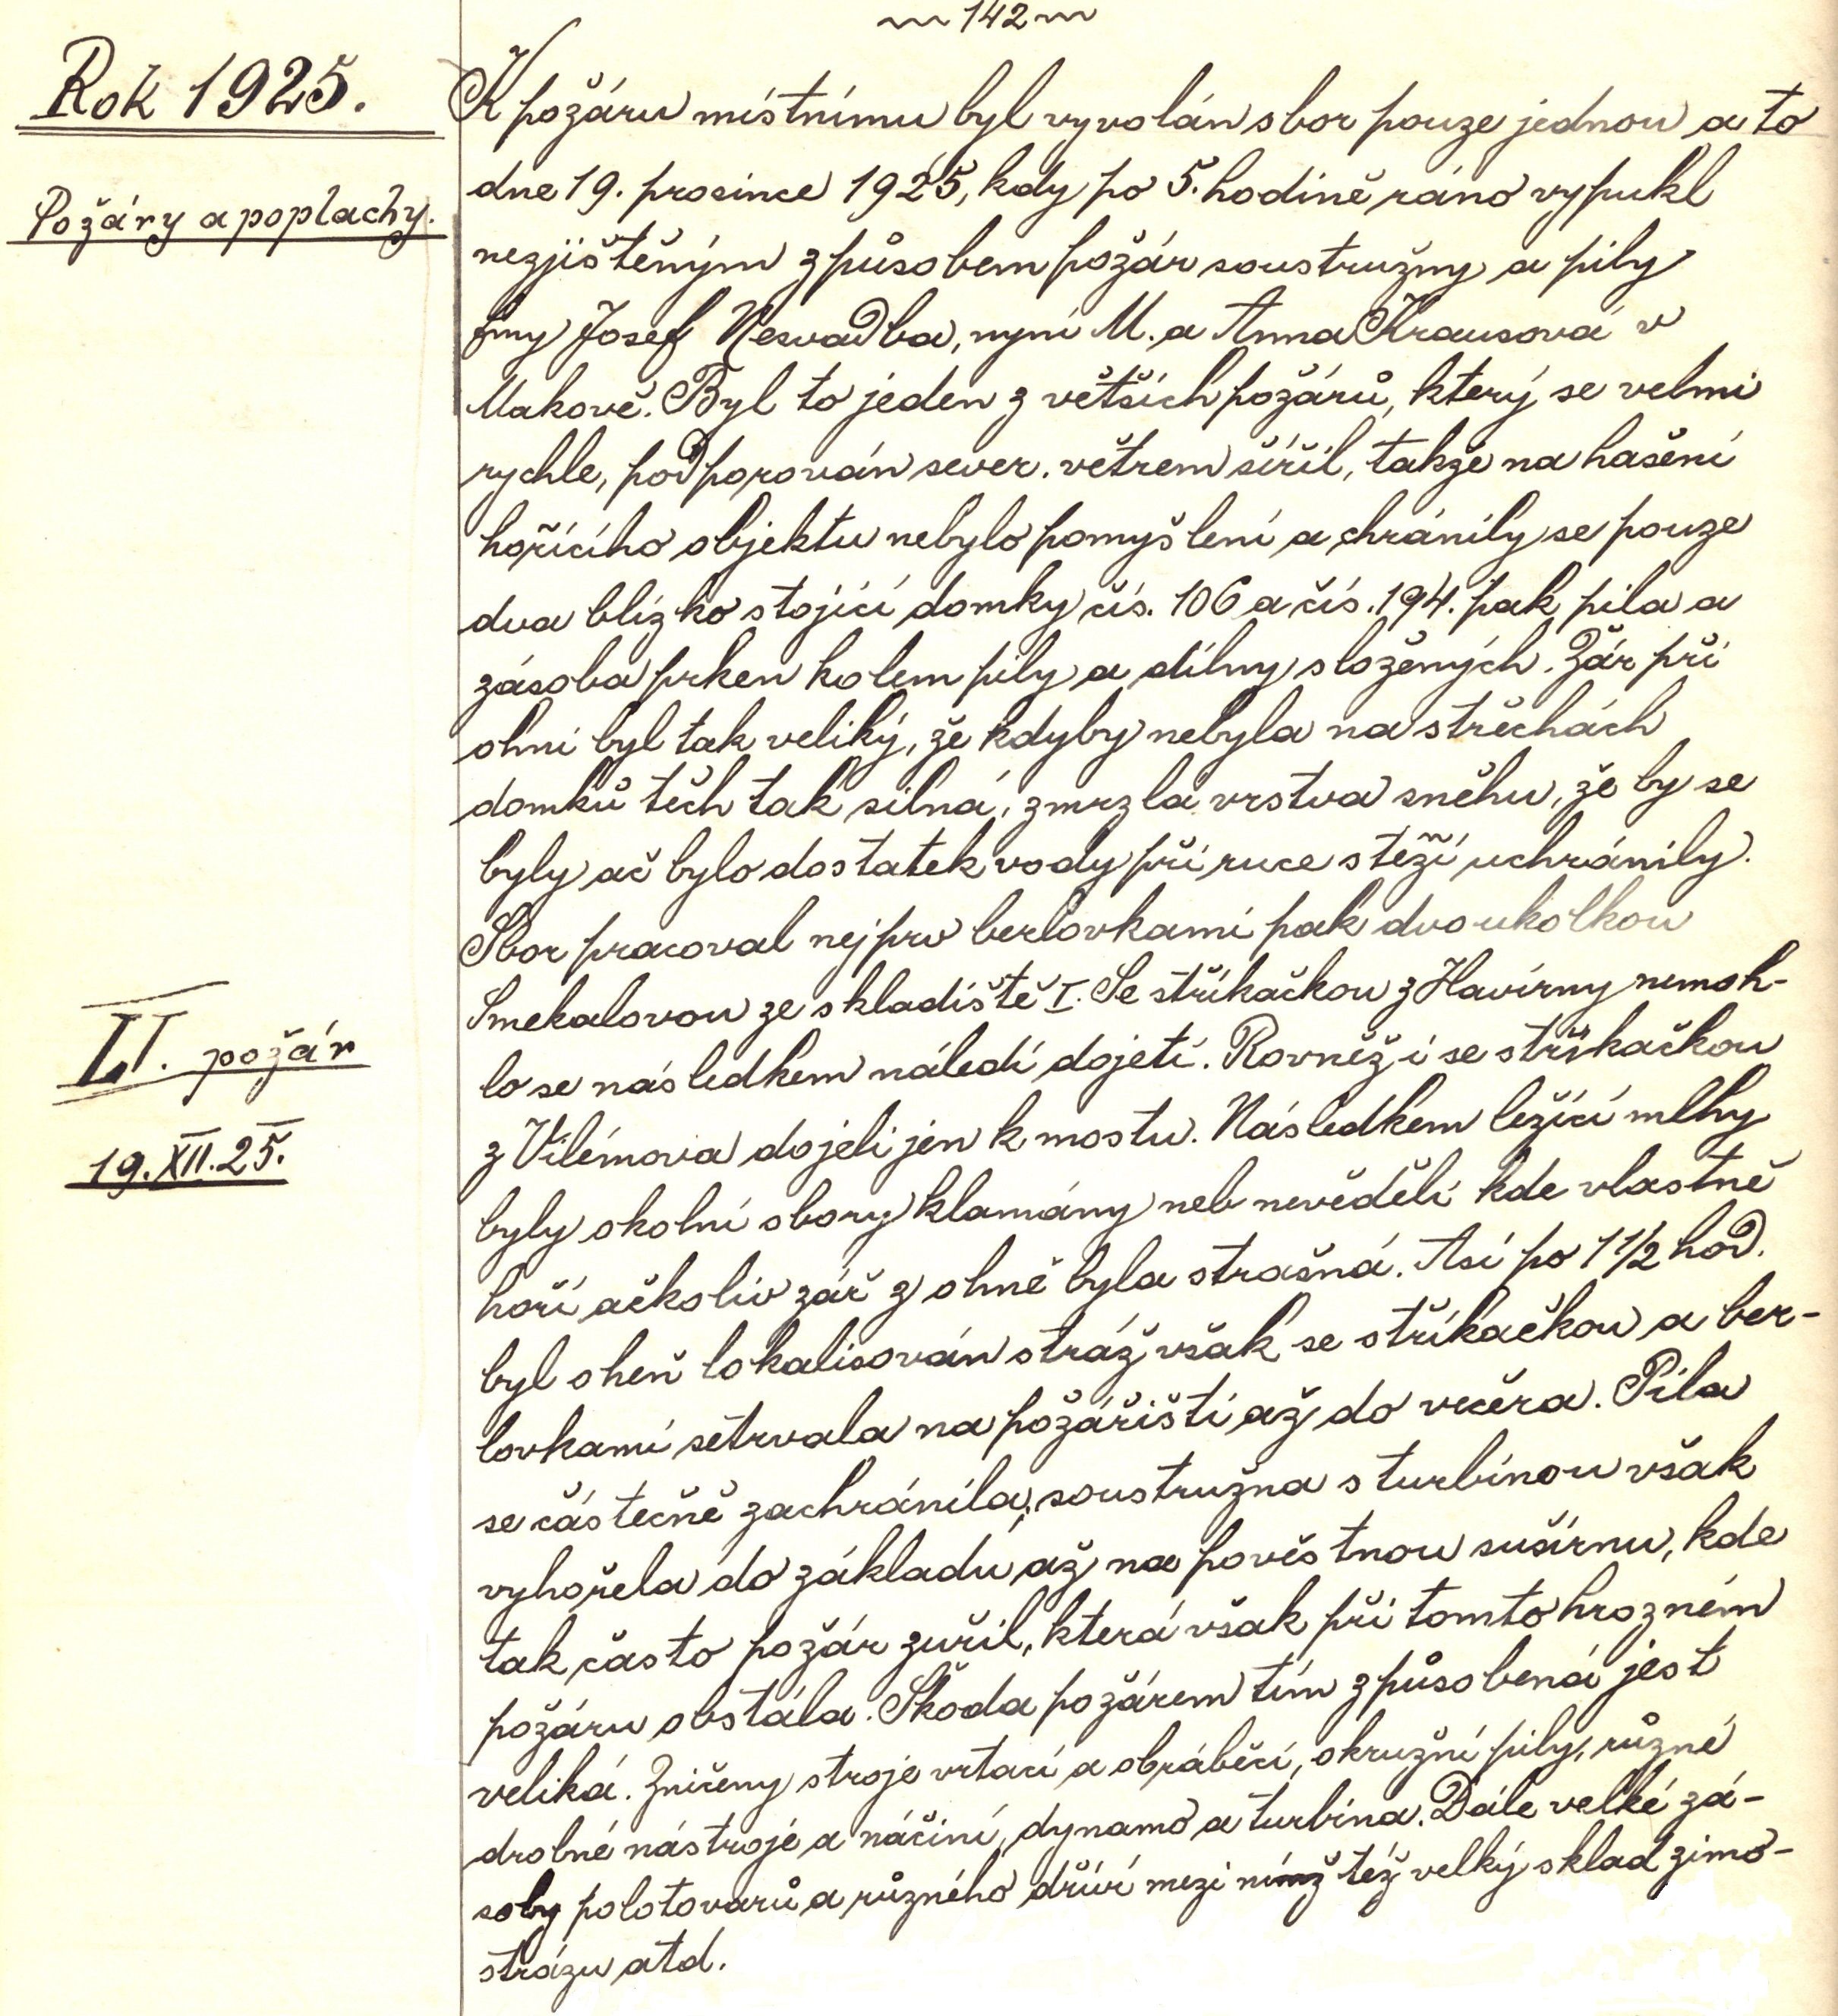 ~ 142 ~
Rok 1925.
Požáry a poplachy.
K požáru místnímu byl vyvolán sbor pouze jednou a to
dne 19. prosince 1925, kdy po 5. hodině ráno vypukl
nezjištěným způsobem požár soustružny a pily
fmy Josef Nesvadba, nyní M. a Anna Krausová v
Makově. Byl to jeden z větších požárů, který se velmi
rychle, podporován sever. větrem šířil, takže na hašení
hořícího objektu nebylo pomyšlení a chránily se pouze
dva blízko stojící domky čís. 106 a čís. 194. pak pila a
zásoba prken kolem pily a dílny složených. Žár při
ohni byl tak veliký, že kdyby nebyla na střechách
domků těch tak silná, zmrzlá vrstva sněhu, že by se
byly ač bylo dostatek vody při ruce stěží uchránily.
Sbor pracoval nejprv berlovkami pak dvoukolkou
Smekalovou ze skladiště I. Se stříkačkou z Havírny nemoh-
lo se následkem náledí dojeti. Rovněž i se stříkačkou
z Vilémova dojeli jen k mostu. Následkem ležící mlhy
byly okolní sbory klamány neb nevěděli kde vlastně
hoří ačkoliv zář z ohně byla strašná. Asi po 1 1/2 hod.
byl oheň lokalisován stráž však se stříkačkou a ber-
lovkami setrvala na požářišti až do večera. Pila
se částečně zachránila, soustružna s turbinou však
vyhořela do základu až na pověstnou sušírnu, kde
tak často požár zuřil, která však při tomto hrozném
požáru obstála. Škoda požárem tím způsobená jest
veliká. Zničeny stroje vrtací a obráběcí, okružní pily, různé
drobné nástroje a náčiní, dynamo a turbina. Dále velké zá-
soby polotovarů a různého dříví mezi nímž též velký sklad zimo-
strázu atd.
LI. požár
19. XII. 25.